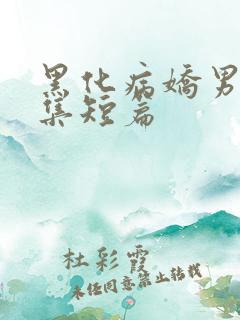 黑化病娇男
集短篇
杜彩霞
未经同意禁止转载